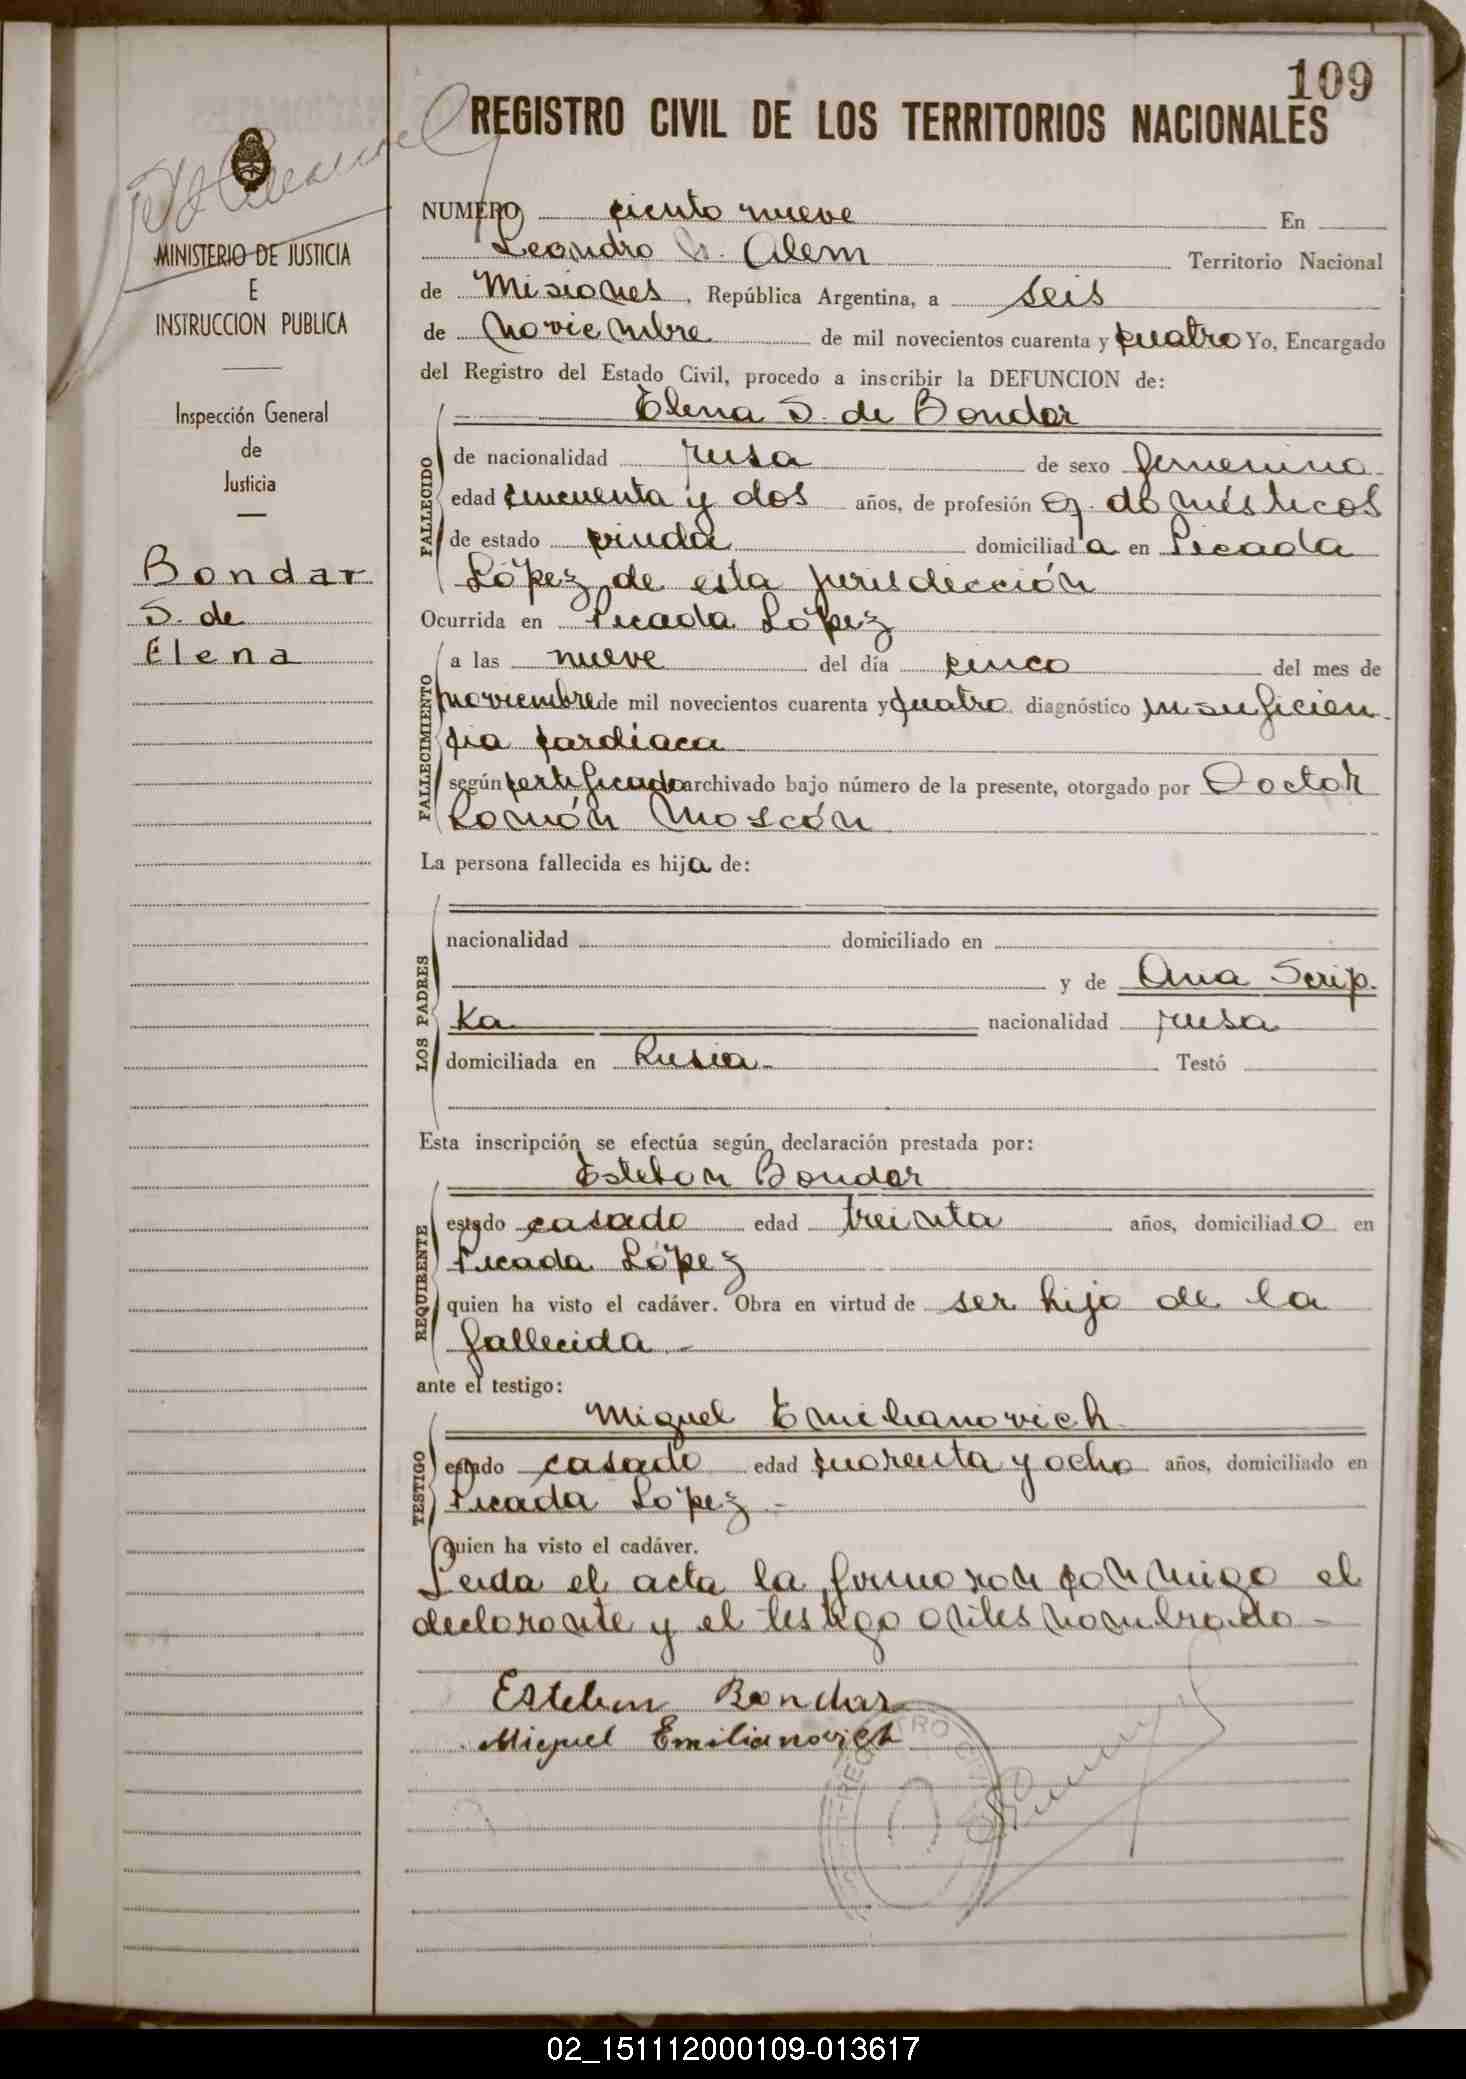 109
REGISTRO CIVIL DE LOS TERRITORIOS NACIONALES
MINISTERIO DE JUSTICIA
E
INSTRUCCION PUBLICA
Inspección General
de
Justicia
Bondar
S. de
Elena
NUMERO ciento nueve En
Leandro N. Alem Territorio Nacional
de Misiones, República Argentina, a seis
de noviembre de mil novecientos cuarenta y cuatro Yo, Encargado
del Registro del Estado Civil, procedo a inscribir la DEFUNCION de:
Elena S. de Bondar
FALLECIDO
de nacionalidad rusa de sexo femenino
edad cincuenta y dos años, de profesión q. domésticos
de estado viuda domiciliada en Picada
López de esta jurisdicción
Ocurrida en Picada López
FALLECIMIENTO
a las nueve del día cinco del mes de
noviembre de mil novecientos cuarenta y cuatro diagnóstico insuficien-
cia cardíaca
según certificado archivado bajo número de la presente, otorgado por Doctor
Ramón Moscón
La persona fallecida es hija de:
LOS PADRES
nacionalidad domiciliado en
y de Ana Scrip-
ka nacionalidad rusa
domiciliada en Rusia- Testó
Esta inscripción se efectúa según declaración prestada por:
Esteban Bondar
REQUIRENTE
estado casado edad treinta años, domiciliado en
Picada López
quien ha visto el cadáver. Obra en virtud de ser hijo de la
fallecida-
ante el testigo:
Miguel Emilianovich
TESTIGO
estado casado edad cuarenta y ocho años, domiciliado en
Picada López-
quien ha visto el cadáver.
Leida el acta la firmaron conmigo el
declarante y el testigo antes nombrado-
Esteban Bondar
Miguel Emilianovich
REGISTRO CIVIL
02_151112000109-013617